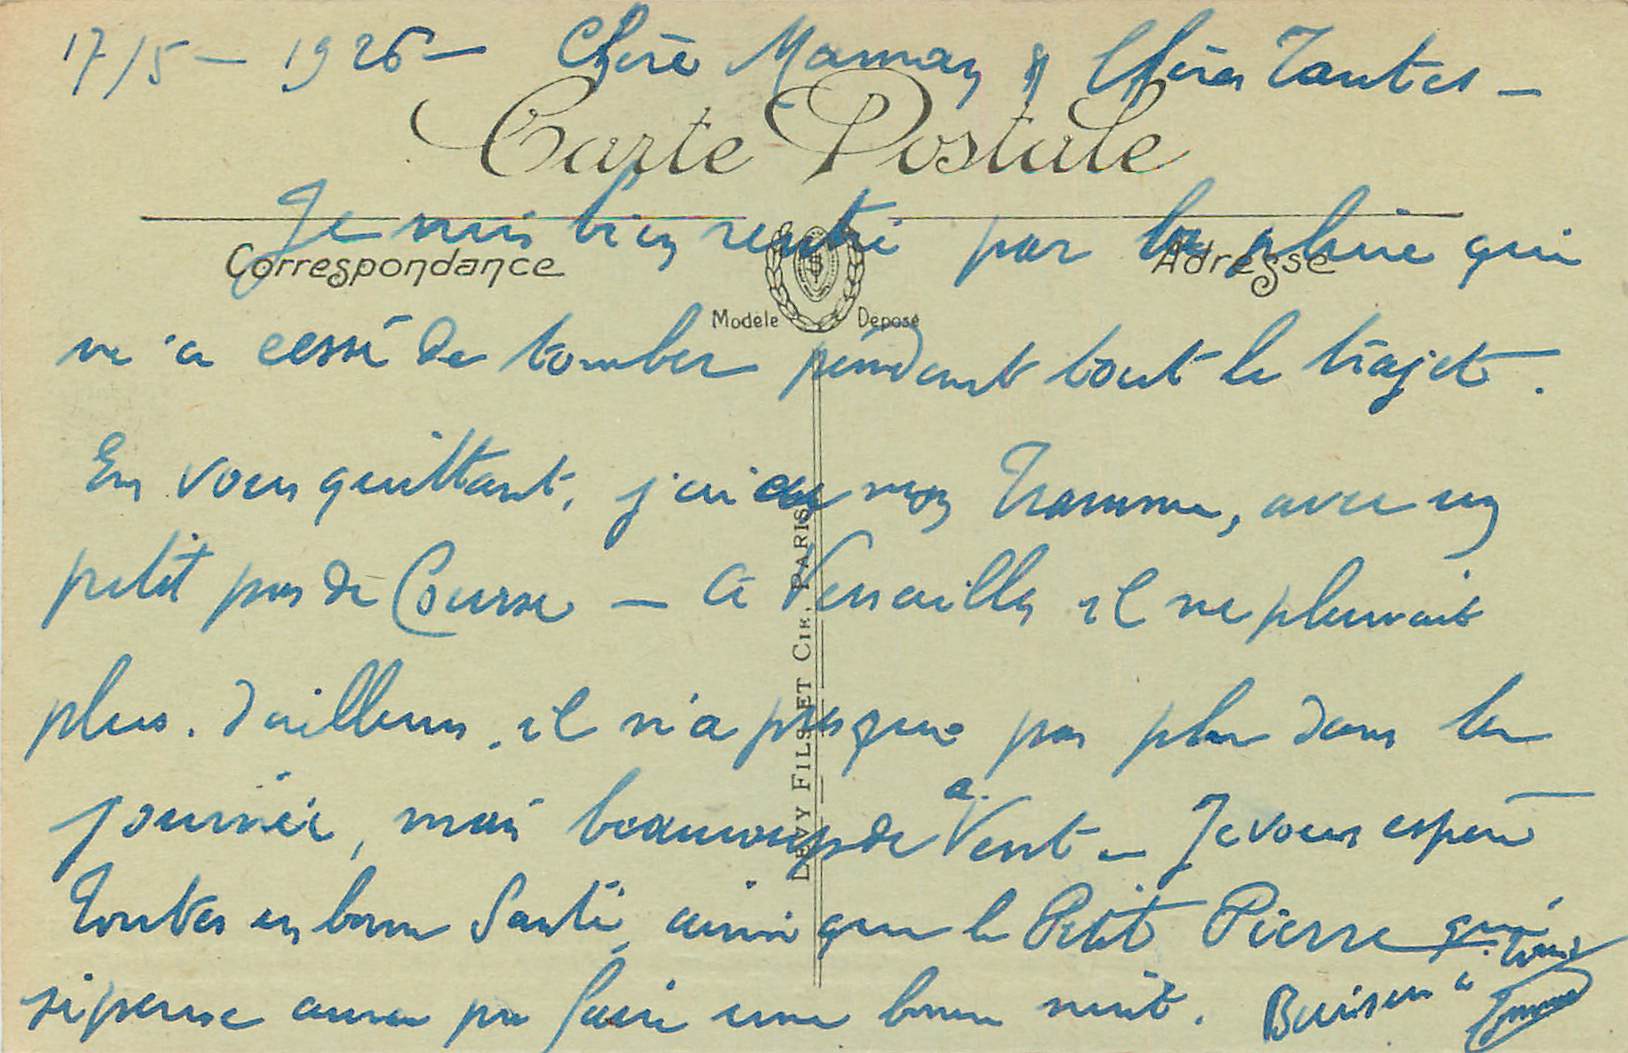 17/5 — 1926 — Chère Maman & Chères Tantes —
Carte Postale
Je suis bien rentré par la pluie qui
Correspondance
Adresse
Modèle Déposé
n'a cessé de tomber pendant tout le trajet.
En vous quittant, j'ai eu mon Tramway, avec un
petit pas de Course — à Versailles il ne pleuvait
plus. D'ailleurs, il n'a presque pas plu dans la
journée, mais beaucoup de Vent — Je vous espère
toutes en bonne Santé, ainsi que le Petit Pierre qui
je pense aura pu faire une bonne nuit. Baisers à
LEVY FILS ET CIE, PARIS